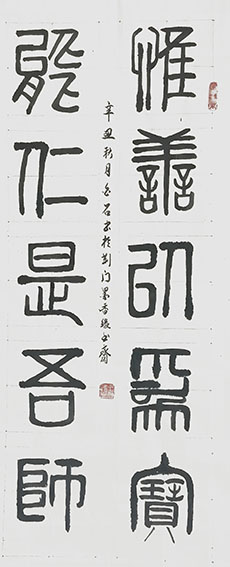 惟善以為寶
能仁是吾師
辛丑秋月白石書於荊门墨香緣書齋